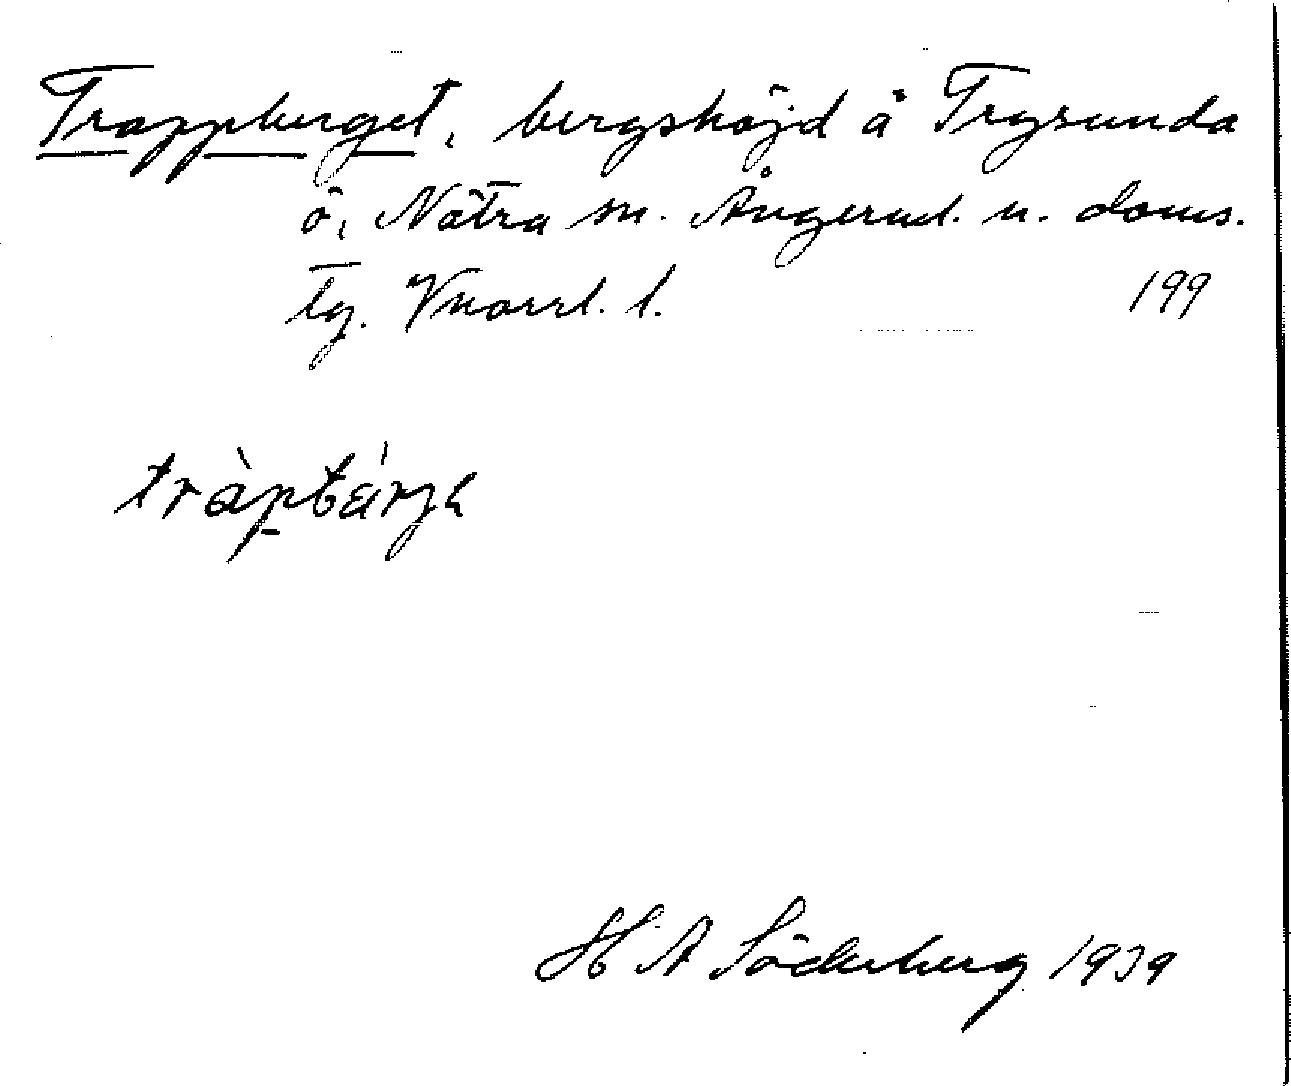 Trappberget, bergshöjd å Trysunda
ö, Nätra sn. Ångerml. n. doms.
tg. Vnorrl. l. 199
H A Söderberg 1939